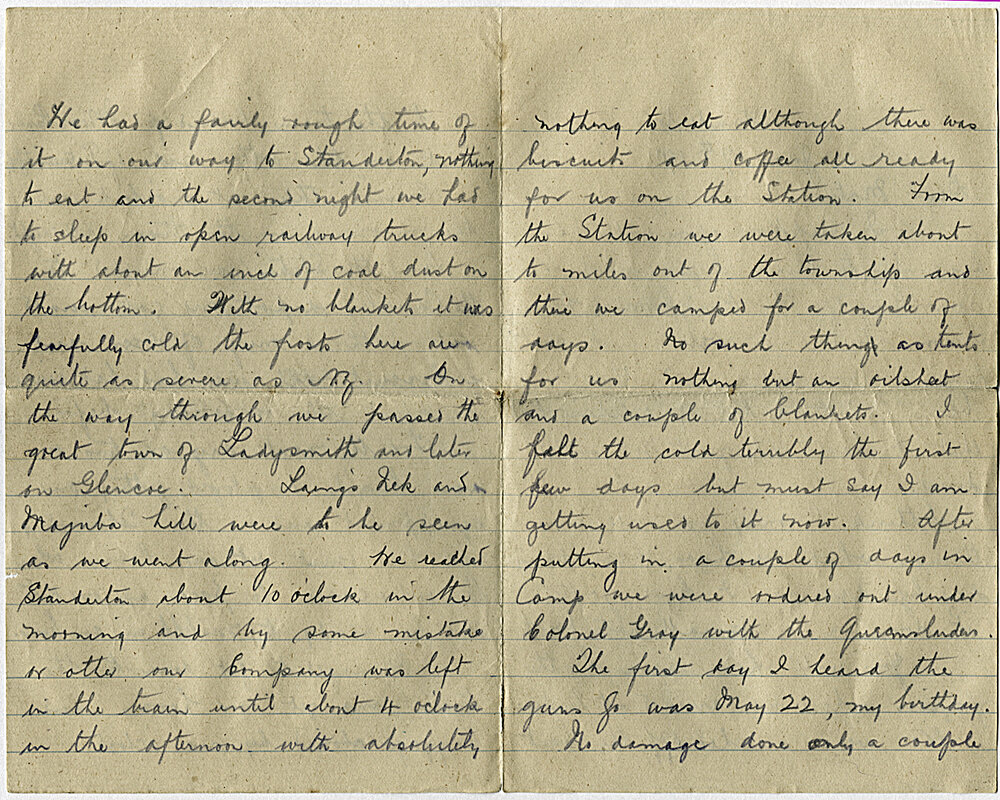 We had a fairly rough time of
it on our way to Standerton, nothing
to eat and the second night we had
to sleep in open railway trucks
with about an inch of coal dust on
the bottom. With no blankets it was
fearfully cold the frosts here are
quite as severe as NZ. On
the way through we passed the
great town of Ladysmith and later
on Glencoe. Laings Nek and
Majuba hill were to be seen
as we went along. We reached
Standerton about 10 oclock in the
morning and by some mistake
or other our Company was left
in the train until about 4 oclock
in the afternoon with absolutely
nothing to eat although there was
biscuits and coffee all ready
for us on the Station. From
the Station we were taken about
to miles out of the township and
there we camped for a couple of
days. No such things as tents
for us nothing but an oilsheet
and a couple of blankets. I
felt the cold terribly the first
few days but must say I am
getting used to it now. After
putting in a couple of days in
Camp we were ordered out under
Colonel Gray with the Queenslanders.
The first day I heard the
guns go was May 22, my birthday.
No damage done only a couple